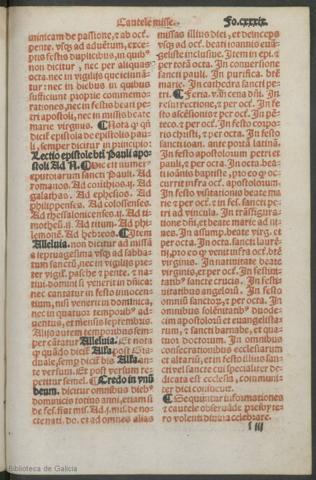 Cautele misse. Fo.cxxxix.
uinicam de passione, z ab oct.
pente. vsq3 ad aduentū, excep-
ptis festis duplicibus, in quib'
non dicitur, nec per aliquas
octa. nec in vigilijs que ieiunā-
tur: nec in diebus in quibus
sufficiunt proprie commemo-
rationes, nec in festis beati pe-
tri apostoli, nec in missis beate
marie virginis. ¶ Nota q qn
dicit epistola de epistolis pau-
li, semper dicitur in principio
Lectio epistole bti Pauli apo-
stoli Ad R.
epistolarum sancti Pauli. Ad
romanos. Ad corithios. ij. Ad
galathas. Ad ephesios. Ad
philippenses. Ad colossenses.
Ad thessalonicenses. ij. Ad ti-
motheū. ij. Ad titum. Ad phi-
lemonē. Ad hebreos. ¶ Item
Alleluia. non dicitur ad missā
a septuagesima vsq3 ad sabba-
tum sanctū, nec in vigilijs pre-
ter vigil. pasche z pente. z na-
tiui. domini si venerint in dnica:
nec cantatur in festo innocen-
tium, nisi venerit in dominica,
nec in quatuor temporib' ad-
uentus, z mensis septembris.
Alijs autem temporibus sem-
per cātatur Alleluia. Et nota
q quādo dicit Alla. post Gra-
duale, semp dicit bis Alla. an-
te versum. Et post versum re-
petitur semel. ¶ Credo in vnū
deum. dicitur omnibus dieb'
dominicis totius anni, etiam si
de fes. fiat mis. Ad. j. mis. de no-
cte nati. do. et ad omnes alias
missas illius diei, et deinceps
vsq3 ad oct. beati ioannis euan-
geliste inclusiue. Item in epi. z
per totā octa. In conuersione
sancti pauli. In purifica. btē
marie. In cathedra sancti pe-
tri. ¶ Feria. v. in cena dñi. In
resurrectione, z per oct. In
festo ascēsionis z per oct. In pē-
teco. z per oct. In festo corpo-
ris christi, z per octa. In festo
sancti ioan. ante portā latinā.
In festo apostolorum petri et
pauli, z per octa. In octa. bea-
ti ioannis baptiste, pro eo q oc-
currit infra oct. apostolorum.
In festo visitationis beate ma-
rie z per oct. z in fes. sancti pe-
tri ad vincula. In trāsfigura-
tione dñi, z beate marie ad ni-
ues. In assump. beate virg. et
per octa. In octa. sancti lauren-
ti, pro eo q venit infra oct. btē
virginis. In natiuitate beate
virginis, et per oct. In festiui-
tatib' sancte crucis. In festiui-
tatibus angelorū. In festo
omniū sanctorū, z per octa. In
omnibus solēnitatib' duode-
cim apostolorū et euangelista-
rum, z sancti barnabe, et qua-
tuor doctorum. In omnibus
consecrationibus ecclesiarum
et altaris, et in festo illius san-
cti vel sancte cui specialiter de-
dicata est ecclesia, communi-
ter dici consueuit.
¶ Sequuntur informationes
z cautele obseruāde presbyte-
ro volenti diuina celebrare.
iij
Biblioteca de Galicia